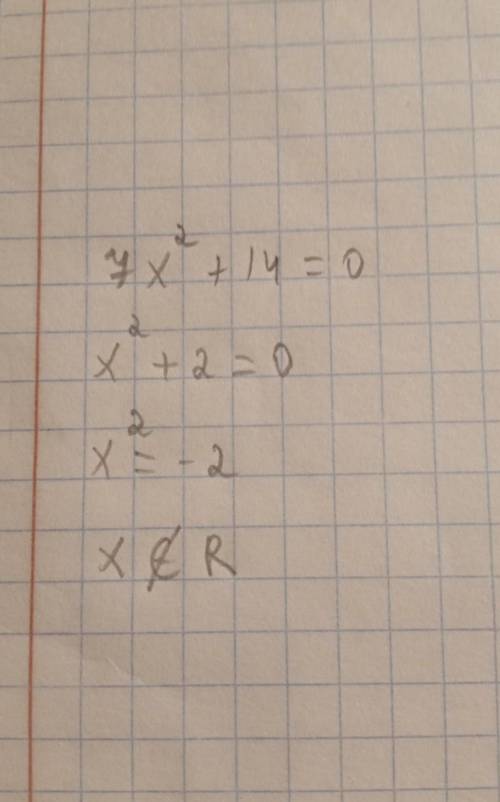 7x² + 14 = 0
x² + 2 = 0
x² = -2
x ∉ R